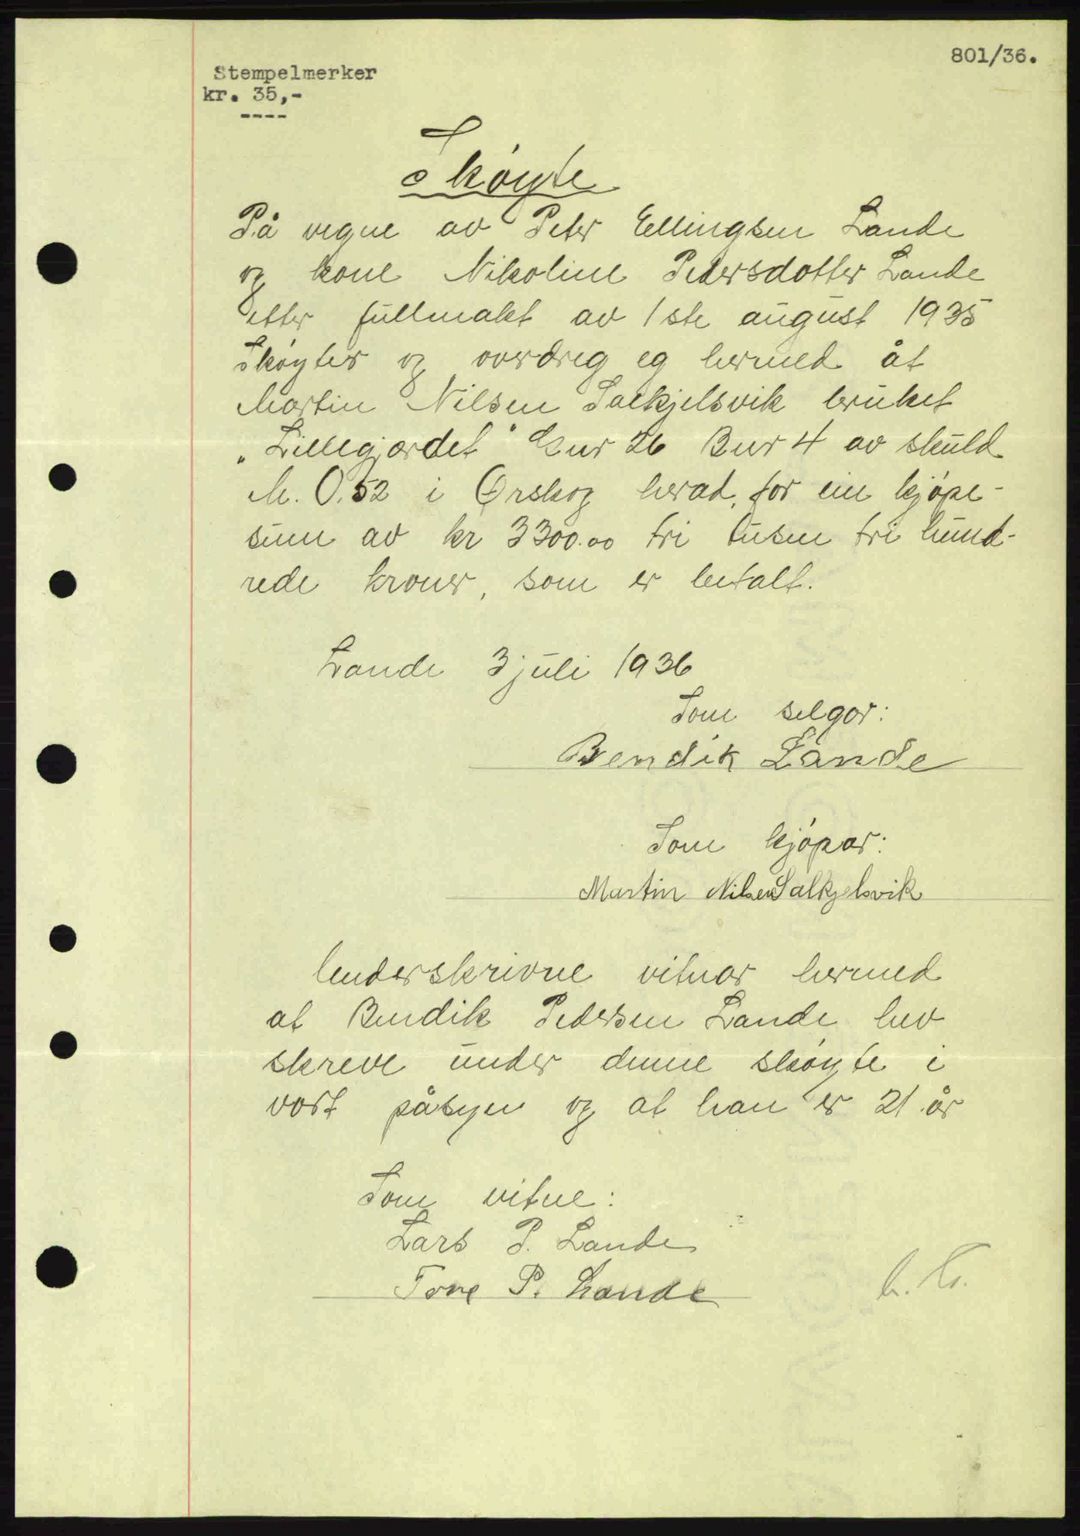 801/36.
Stempelmerker
kr. 35,-
----
Skøyte
På vegne av Peter Ellingsen Lande
og kone Nikoline Pedersdotter Lande
etter fullmakt av 1ste august 1935
Skøyter og overdreg eg hermed åt
Martin Nilsen Salkjelsvik bruket
„Lillegjærdet" Gnr 26 Bnr 4 av skuld
M. 0.52 i Ørskog herad, for ein kjøpe-
sum av kr 3300.00 tri tusen tri hund-
rede kroner, som er betalt.
Lande 3 juli 1936
Som selgar:
Bendik Lande
Som kjøpar:
Martin Nilsen Salkjelsvik
Underskrivne vitnar hermed
at Bendik Pedersen Lande hev
skreve under denne skøyte i
vort påsyn og at han er 21 år
Som vitne:
Lars P. Lande
Tore P. Lande